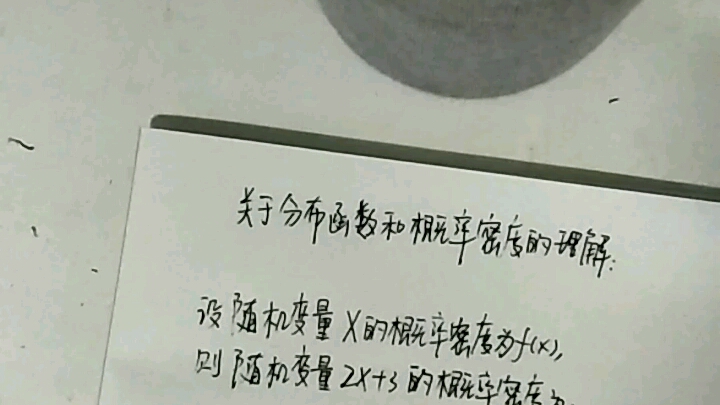 关于分布函数和概率密度的理解:
设随机变量X的概率密度为f(x),
则随机变量2X+3的概率密度为